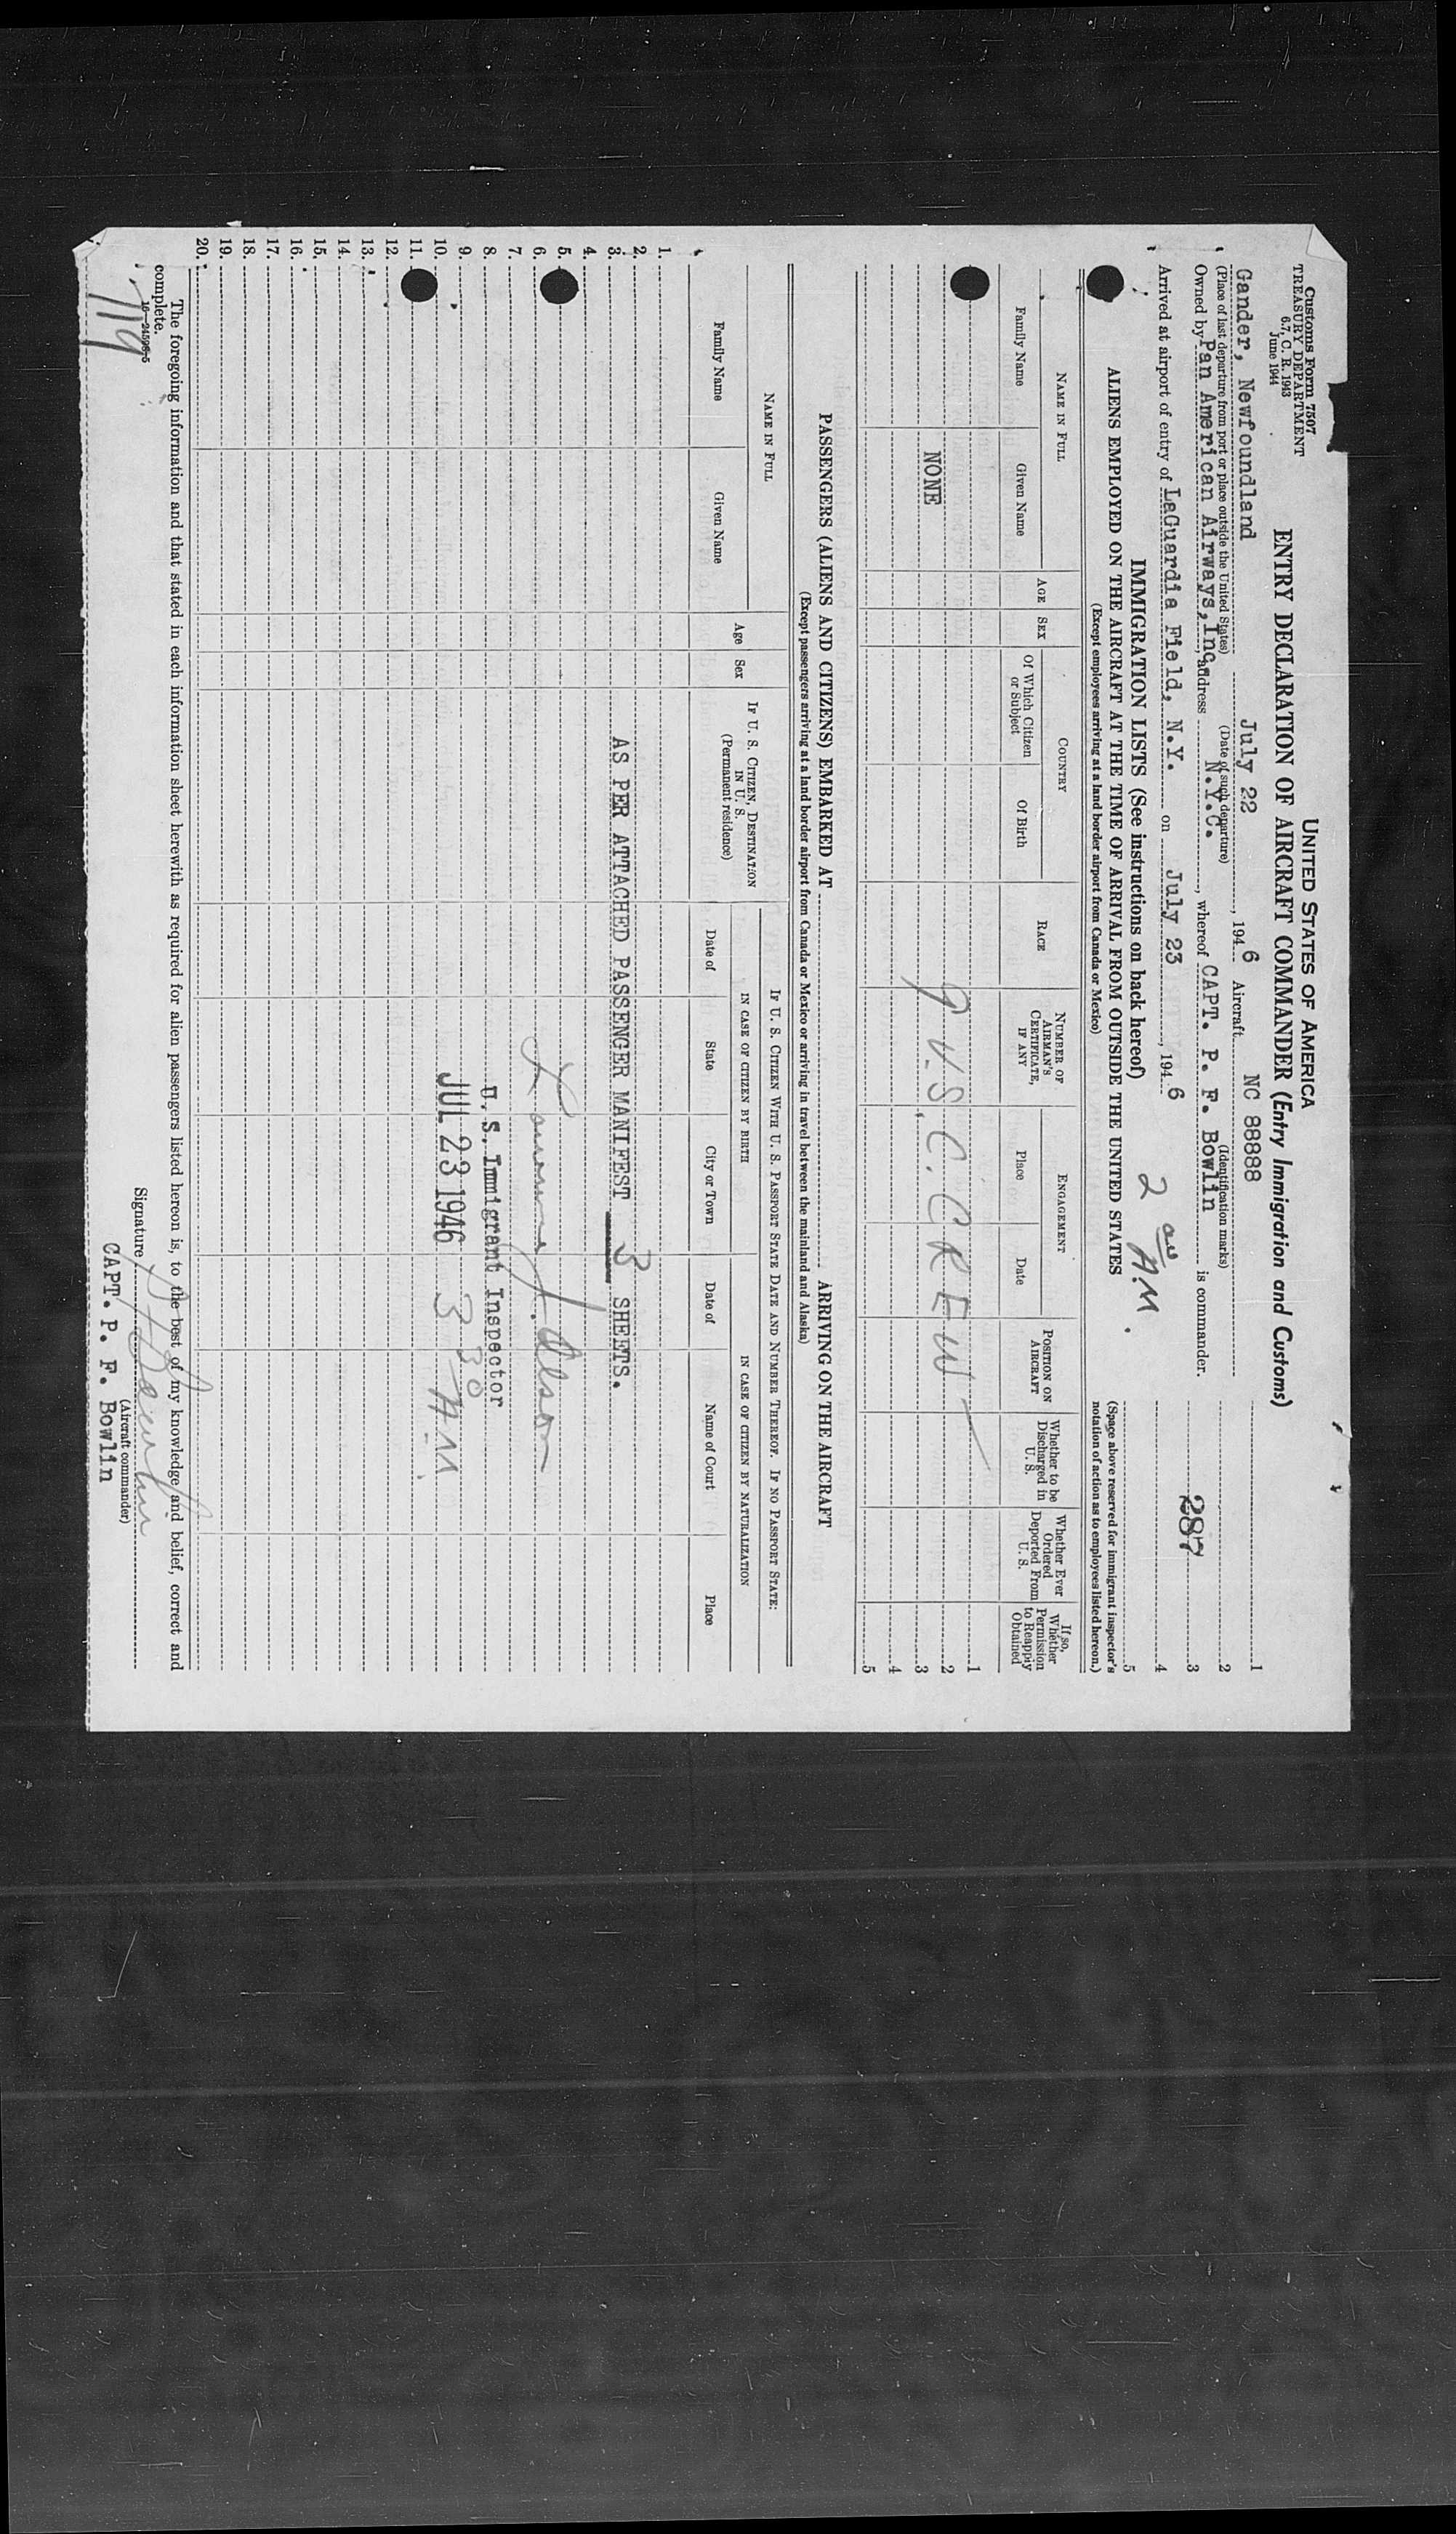 Customs Form 7507
TREASURY DEPARTMENT
6.7, C. R. 1943
June 1944
UNITED STATES OF AMERICA
ENTRY DECLARATION OF AIRCRAFT COMMANDER (Entry Immigration and Customs)
Gander, Newfoundland July 22, 1946 Aircraft NC 88888
(Place of last departure from port or place outside the United States) (Date of such departure) (Identification marks)
Owned by Pan American Airways, Inc, address N.Y.C., whereof CAPT. P. F. Bowlin is commander.
Arrived at airport of entry of LaGuardia Field, N.Y. on July 23, 1946
2 A.M.
287
1
2
3
4
5
(Space above reserved for immigrant inspector's notation of action as to employees listed hereon.)
IMMIGRATION LISTS (See instructions on back hereof)
ALIENS EMPLOYED ON THE AIRCRAFT AT THE TIME OF ARRIVAL FROM OUTSIDE THE UNITED STATES
(Except employees arriving at a land border airport from Canada or Mexico)
NAME IN FULL
Family Name
Given Name
AGE
SEX
COUNTRY
Of Which Citizen or Subject
Of Birth
RACE
NUMBER OF AIRMAN'S CERTIFICATE, IF ANY
ENGAGEMENT
Place
Date
POSITION ON AIRCRAFT
Whether to be Discharged in U. S.
Whether Ever Ordered Deported From U. S.
If so, Whether Permission to Reapply Obtained
1
2
NONE
9 U.S.C. CREW
3
4
5
PASSENGERS (ALIENS AND CITIZENS) EMBARKED AT ARRIVING ON THE AIRCRAFT
(Except passengers arriving at a land border airport from Canada or Mexico or arriving in travel between the mainland and Alaska)
NAME IN FULL
Family Name
Given Name
Age
Sex
IF U. S. CITIZEN, DESTINATION IN U. S.
(Permanent residence)
IF U. S. CITIZEN WITH U. S. PASSPORT STATE DATE AND NUMBER THEREOF. IF NO PASSPORT STATE:
IN CASE OF CITIZEN BY BIRTH
Date of
State
City or Town
IN CASE OF CITIZEN BY NATURALIZATION
Date of
Name of Court
Place
1.
2.
3. AS PER ATTACHED PASSENGER MANIFEST 3 SHEETS.
4.
5.
6.
7.
8. U. S. Immigrant Inspector
9.
10. JUL 23 1946 3 30 A.M.
11.
12.
13.
14.
15.
16.
17.
18.
19.
20.
The foregoing information and that stated in each information sheet herewith as required for alien passengers listed hereon is, to the best of my knowledge and belief, correct and
complete.
16—24598-5
Signature P F Bowlin
(Aircraft commander)
CAPT. P. F. Bowlin